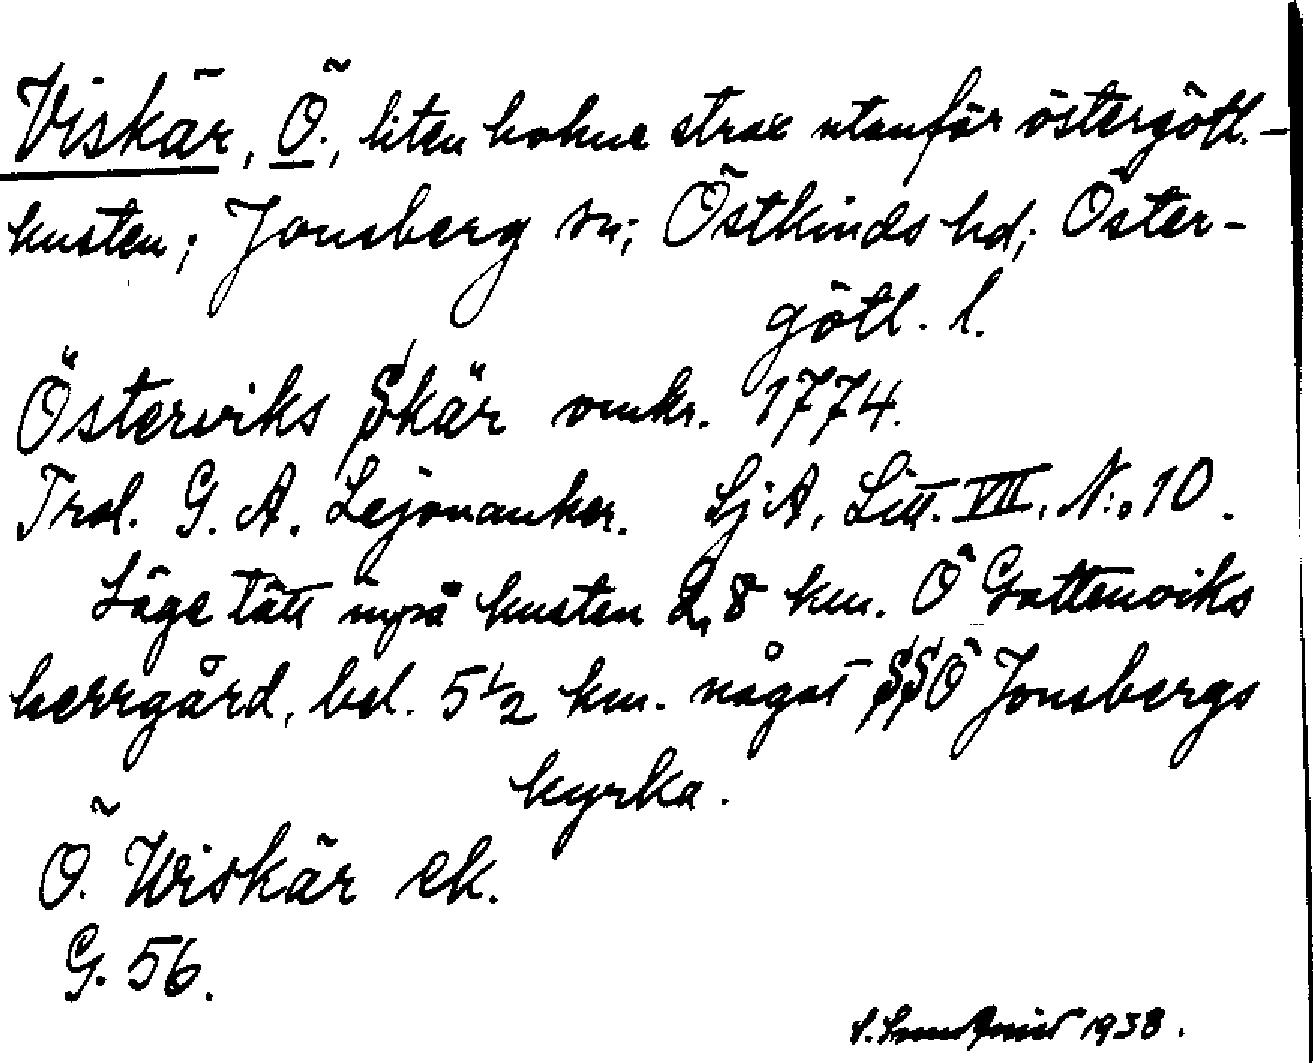 Viskär, Ö., liten holme strax utanför östergötl.-
kusten; Jonsberg sn; Östkinds hd; Öster-
götl. l.
Österviks Skär omkr. 1774.
Trol. G. A. Lejonanker. SjA, Litt. VII, N:o 10.
Läge tätt inpå kusten 2,8 km. Ö Gottenviks
herrgård, bel. 5 1/2 km. något SSÖ Jonsbergs
kyrka.
Ö. Wiskär ek.
G. 56.
1938.